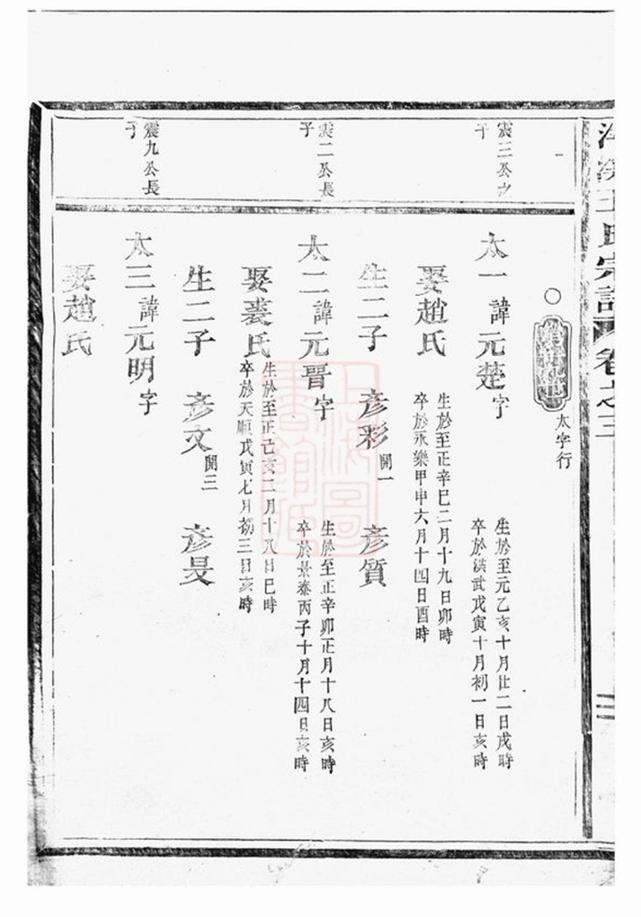 王氏宗譜 卷之三
太字行
震三公之子
太一 諱元楚 字
生於至元乙亥十月廿二日戌時
卒於洪武戊寅十月初一日亥時
娶趙氏
生於至正辛巳二月十九日卯時
卒於永樂甲申六月十四日酉時
生二子 彥彩 開一 彥質
震二公長子
太二 諱元晋 字
生於至正辛卯正月十八日亥時
卒於景泰丙子十月十四日亥時
娶裘氏
生於至正己亥二月十八日巳時
卒於天順戊寅七月初三日亥時
生二子 彥文 開三 彥旻
震九公長子
太三 諱元明 字
娶趙氏